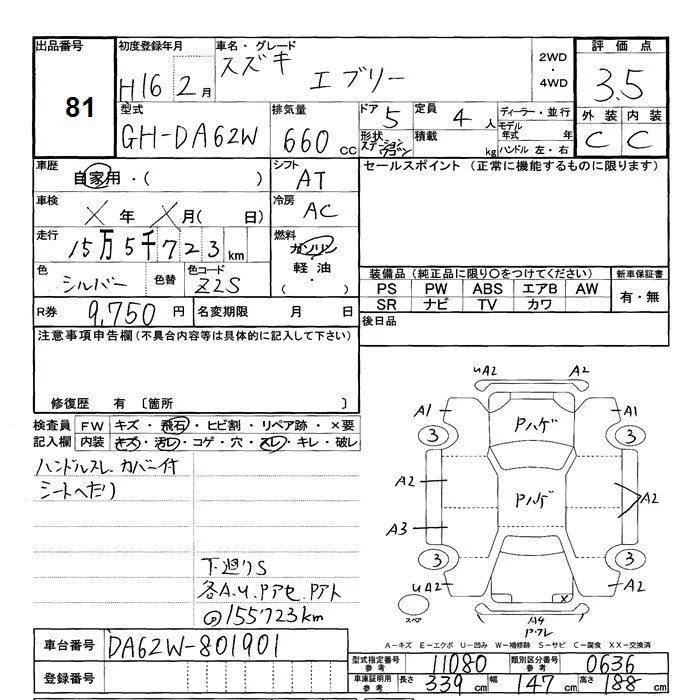 出品番号 初度登録年月 車名・グレード 2WD・4WD 評価点
81 H16 2月 スズキ エブリー 3.5
型式 排気量 ドア 5 定員 4人 ディーラー・並行 外装 内装
GH-DA62W 660cc 形状 ステーションワゴン 積載 kg モデル年式 年 ハンドル 左・右 C C
車歴 自家用・( ) シフト AT セールスポイント (正常に機能するものに限ります)
車検 X年 X月( 日) 冷房 AC
走行 15万5千723km 燃料 ガソリン 軽油・( )
色 シルバー 色替 色コード Z2S
装備品(純正品に限り○をつけてください) 新車保証書
PS PW ABS エアB AW 有・無
SR ナビ TV カワ
R券 9,750円 名変期限 月 日 後日品
注意事項申告欄(不具合内容等は具体的に記入して下さい)
修復歴 有 〔箇所 〕
検査員 FW キズ・飛石・ヒビ割・リペア跡・×要
記入欄 内装 キズ・汚レ・コゲ・穴・スレ・キレ・破レ
ハンドルスレ カバー付
シートへたり
下廻りS
各A.U.Pアセ.Pアト
@155723km
uA2 A2
A1 Pハゲ A1
3 3
A2 Pハゲ A2
A3
3 3
uA2 x A2
スペア A4
P.フレ
A-キズ E-エクボ U-凹み W-補修跡 S-サビ C-腐食 XX-交換済
車台番号 DA62W-801901
型式指定番号 参考 11080 類別区分番号 参考 0636
登録番号
車庫証明用 参考 長さ 339cm 幅 147cm 高さ 188cm